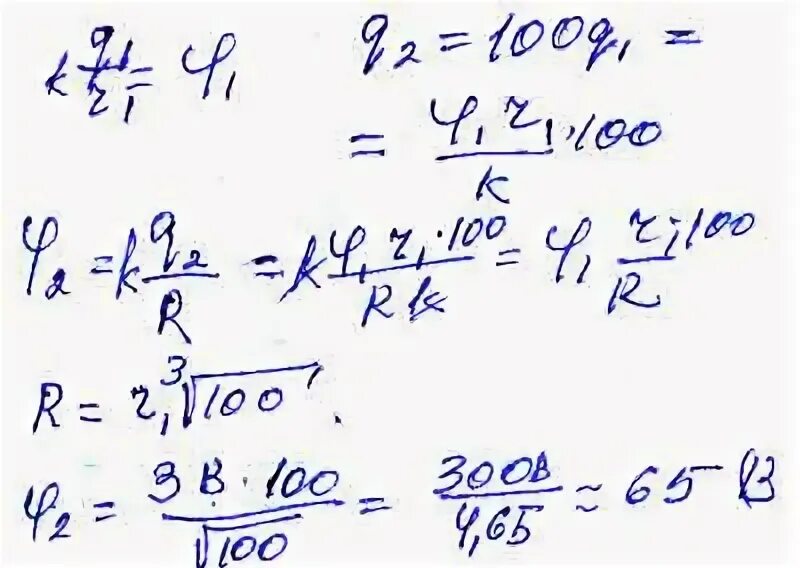 k q₁/r₁ = φ₁
q₂ = 100q₁ =
= φ₁ r₁·100 / k
φ₂ = k q₂/R = k φ₁ r₁·100 / R k = φ₁ r₁·100 / R
R = r₁ ∛100.
φ₂ = 3 В·100 / √100 = 300В / 4,65 ≈ 65 В